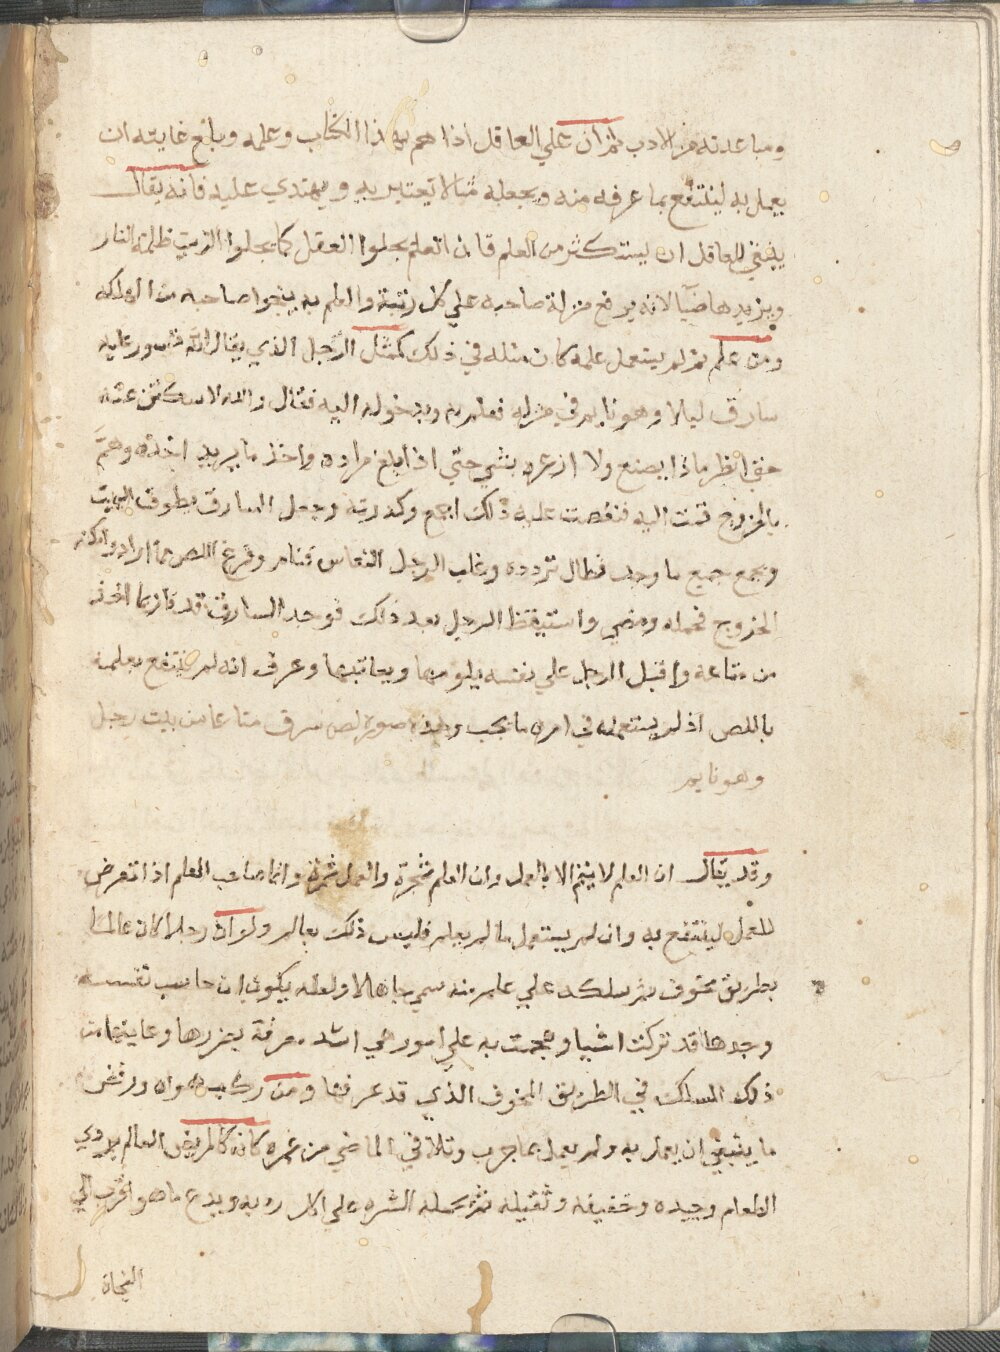 ومباعدته من الادب ثم ان علي العاقل اذا هم بهذا الكتاب وعلمه وبلغ غايته ان
يعمل به لينتفع بما عرفه منه ويجعله مثالا يعتبر به ويهتدي عليه فانه يقال
ينبغي للعاقل ان يستكثر من العلم فان العلم يجلوا العقل كما يجلوا الزيت ظلمة النار
ويزيدها ضيآ لانه يرفع منزلة صاحبه علي كل رتبة والعلم به ينجوا صاحبه من الهلكه
ومن علم ثم لم يستعمل علمه كان مثله في ذلك كمثل الرجل الذي يقال انه تسور عليه
سارق ليلا وهو نايم في منزله فعلم به وبدخوله اليه فقال والله لاسكتن عنه
حتي انظر ماذا يصنع ولا ازعره بشي حتي اذا بلغ مراده واخذ ما يريد اخذه وهمّ
بالخروج قمت اليه فنغصت عليه ذلك اجمع وكدرته وجعل السارق يطوف البيت
ويجمع جميع ما وجد فطال تردده وغلب الرجل النعاس فنام وفرغ اللص مما اراد وامكنه
الخروج فحمله ومضي واستيقظ الرجل بعد ذلك فوجد السارق قد فاز بما اخذ
من متاعه واقبل الرجل علي نفسه يلومها ويعاتبها وعرف انه لم ينتفع بعلمه
باللص اذ لم يستعمله في امره ما يجب وهذه صورة لص سرق متاعا من بيت رجل
وهو نايم
وقد يقال ان العلم لا يتم الا بالعمل وان العلم شجرة والعمل ثمرة وانما صاحب العلم اذا تعرض
للعمل لينتفع به وان لم يستعمل ما لم يعلم فليس ذلك بعالم ولو ان رجلا كان عالما
بطريق مخوف ثم سلكه علي علم منه سمي جاهلا ولعله يكون ان حاسب نفسه
وجدها قد تركت اشيا وهجمت به علي امور هي اشد معرفة بضررها وعاينها من
ذلك المسلك في الطريق المخوف الذي قد عرفها ومن ركب هواه ورفض
ما ينبغي ان يعمل به ولم يعمل بما جرب وتلافي الماضي من عمره كانه كالمريض العالم بردي
الطعام وجيده وخفيفه وثقيله ثم يحمله الشره علي اكل رديه ويدع ما هو اقرب الي
النجاة